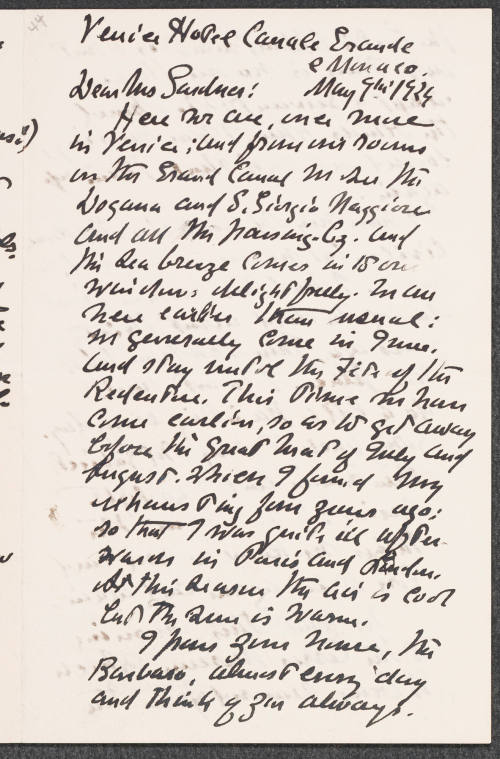 Venice Hotel Canale Grande
e Monaco.
Dear Mrs Gardner: May 9th 1924
Here we are, once more
in Venice; and from our rooms
on the Grand Canal we see the
Dogana and S. Giorgio Maggiore
and all the passing-by. and
the sea breeze comes in to our
windows delightfully. We are
here earlier than usual:
we generally come in June.
and stay until the Fête of the
Redentore. This time we have
come earlier, so as to get away
before the great heat of July and
August. which I found very
exhausting four years ago:
so that I was quite ill after-
wards in Paris and London.
At this season the air is cool
but the sun is warm.
I pass your house, the
Barbaro, almost every day
and think of you always.